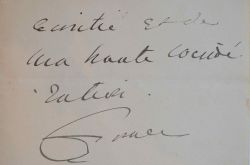 amitié et de
ma haute considé
ration.